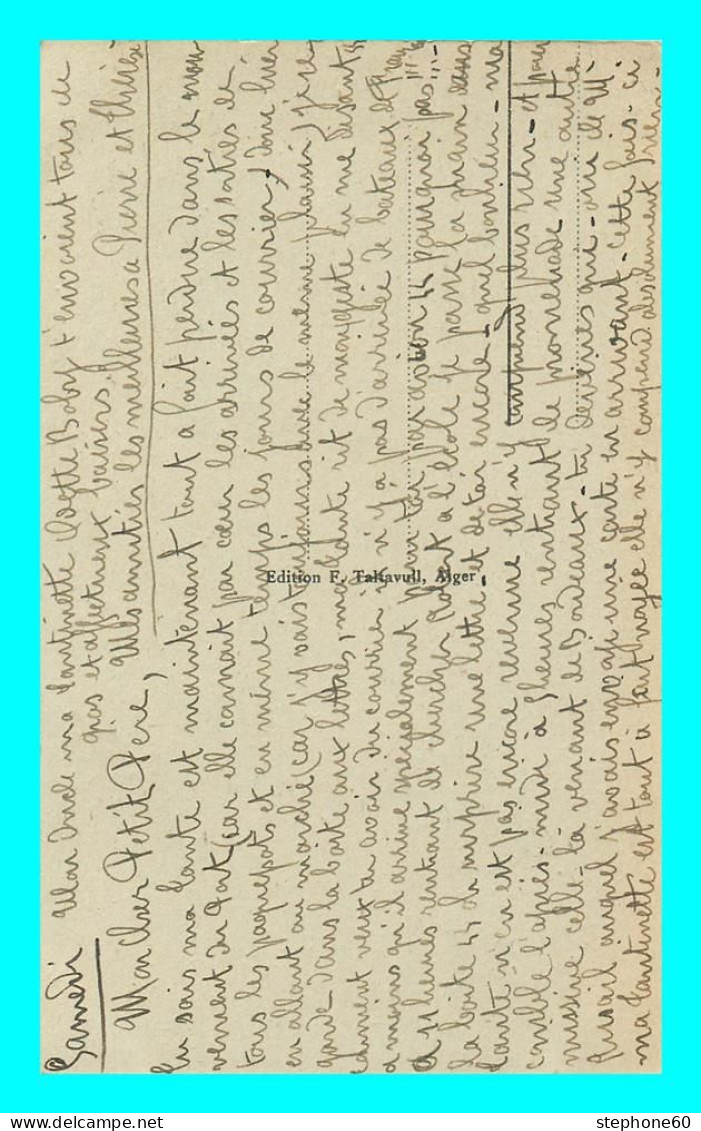 Samedi
Mon Oncle ma Tantinette Cosette Baby t'envoient tous de
gros et affectueux baisers.
Mes amitiés les meilleures à Pierre et Thérèse
Mon cher Petit Père,
tu sais ma Tante est maintenant tout à fait perdue dans le mou
vement du Port, car elle connait par cœur les arrivées et les sorties de
tous les paquebots et en même temps les jours de courrier, donc hier
en allant au marché (car j'y vais toujours avec le même plaisir) je re-
garde dans la boite aux lettres, ma Tante rit de moi ensuite en me disant "
comment veux tu avoir du courrier il n'y a pas d'arrivée de bateaux de France
à moins qu'il arrive spécialement pour toi par avion " pourquoi pas !!! -
à 11 heures rentrant de chercher Robert à l'école je passe la main dans
la boite " oh surprise une lettre, et de toi encore, quel bonheur - ma
Tante n'en est pas encore revenue elle n'y comprend plus rien - et pour
comble l'après-midi à 5 heures rentrant de promenade une autre
missive celle-là venant de Bordeaux - tu devines qui - oui de M.
Rusail auquel j'avais envoyé une carte en arrivant. Cette fois-ci
ma Tantinette est tout à fait noyée elle n'y comprend absolument rien -
Edition F. Taltavull, Alger
stephone60